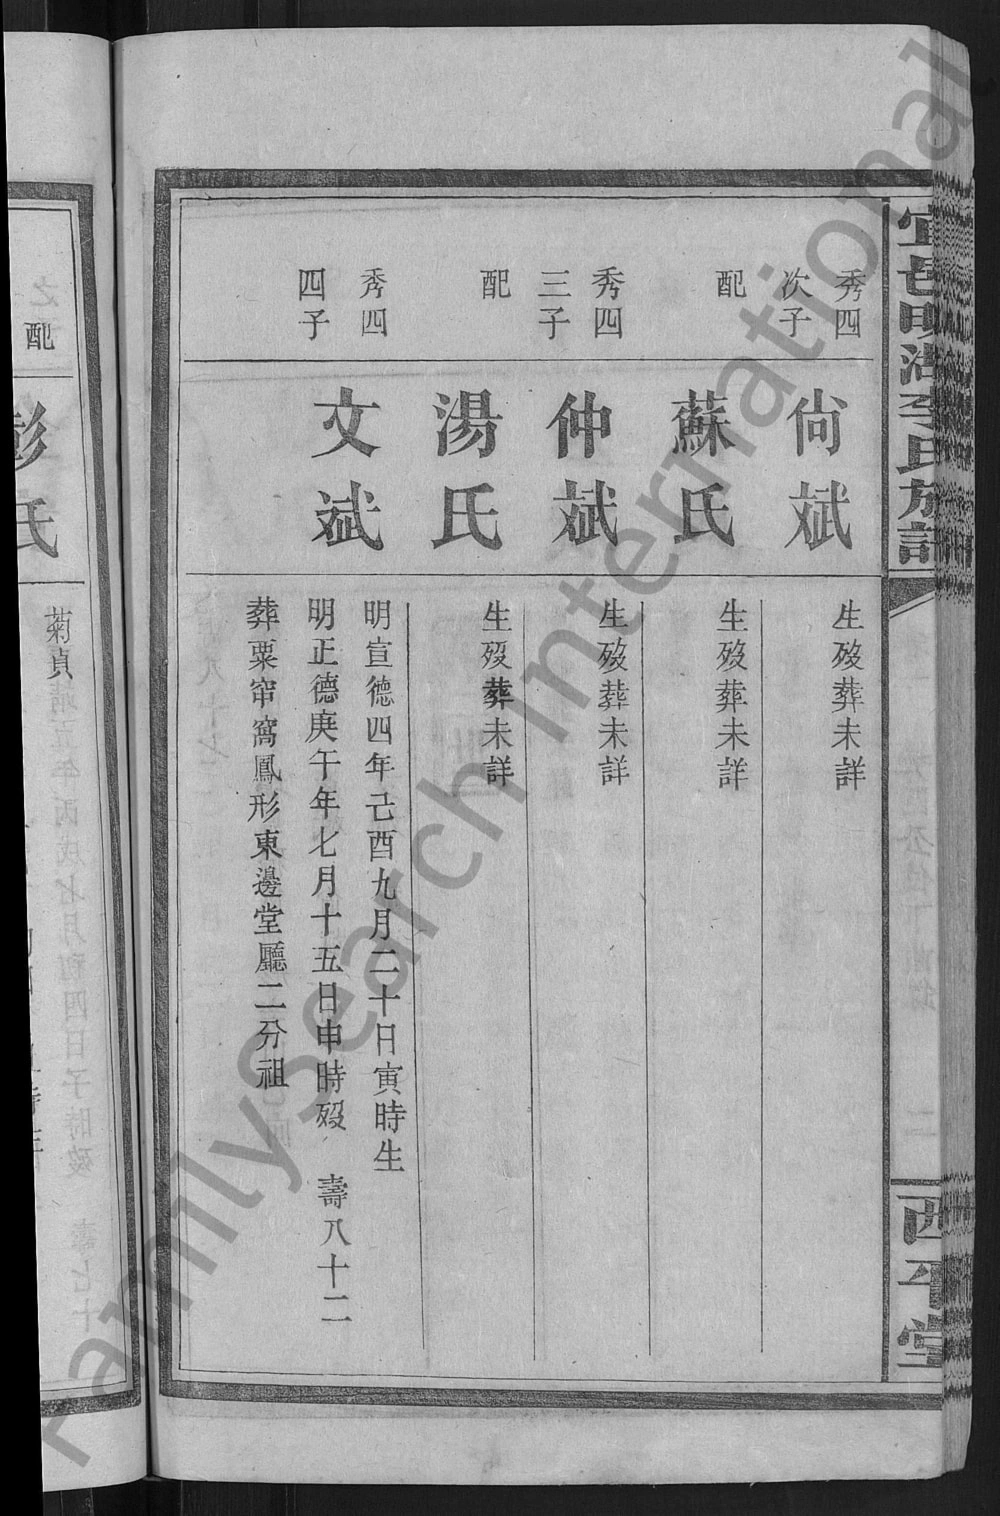 宜邑明湖李氏族譜
二
西平堂
秀四
次子
尙斌
生歿葬未詳
配
蘇氏
生歿葬未詳
秀四
三子
仲斌
生歿葬未詳
配
湯氏
生歿葬未詳
秀四
四子
文斌
明宣德四年己酉九月二十日寅時生
明正德庚午年七月十五日申時歿 壽八十二
葬粟帘窩鳳形東邊堂廳二分祖
配
彭氏
菊貞
FamilySearch International